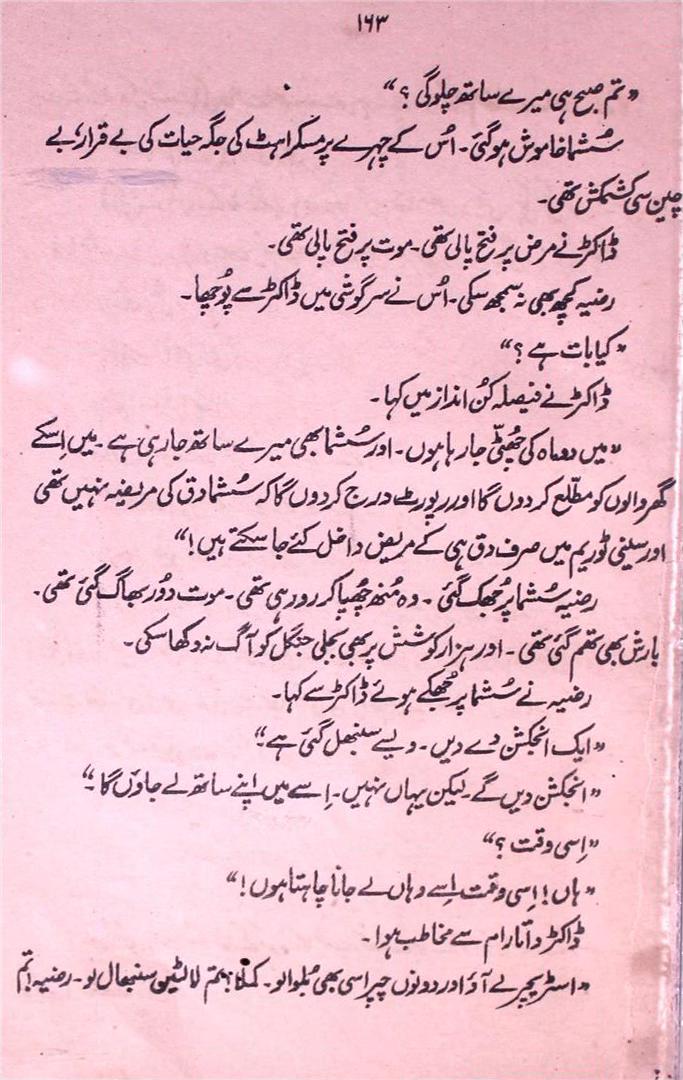 ۱۶۳
”تم صبح ہی میرے ساتھ چلو گی ؟“
سُشما خاموش ہو گئی ۔ اُس کے چہرے پر مسکراہٹ کی جگہ حیات کی بے قرار، بے
چین سی کشمکش تھی۔
ڈاکٹر نے مرض پر فتح پالی تھی ۔ موت پر فتح پالی تھی۔
رضیہ کچھ بھی نہ سمجھ سکی۔ اُس نے سرگوشی میں ڈاکٹر سے پُوچھا۔
”کیا بات ہے ؟“
ڈاکٹر نے فیصلہ کُن انداز میں کہا۔
”میں دو ماہ کی چھُٹّی جا رہا ہوں ۔ اور سُشما بھی میرے ساتھ جا رہی ہے ۔ میں اِسکے
گھر والوں کو مطّلع کر دوں گا اور رپورٹ درج کر دوں گا کہ سُشما دق کی مریضہ نہیں تھی
اور سینی ٹوریم میں صرف دق ہی کے مریض داخل کئے جا سکتے ہیں !“
رضیہ سُشما پر جُھک گئی ۔ وہ مُنھ چھُپا کر رو رہی تھی ۔ موت دُور بھاگ گئی تھی ۔
بارش بھی تھم گئی تھی ۔ اور ہزار کوشش پر بھی بجلی جنگل کو آگ نہ دکھا سکی۔
رضیہ نے سُشما پر جُھکے ہوئے ڈاکٹر سے کہا۔
”ایک انجکشن دے دیں ۔ ویسے سنبھل گئی ہے“
”انجکشن دیں گے ۔ لیکن یہاں نہیں ۔ اِسے میں اپنے ساتھ لے جاؤں گا ۔“
”اِسی وقت ؟“
”ہاں ! اِسی وقت اِسے وہاں لے جانا چاہتا ہوں !“
ڈاکٹر داتا رام سے مخاطب ہوا ۔
”اسٹریچر لے آؤ اور دونوں چپراسی بھی بُلوا لو ۔ کملا ! تم لالٹین سنبھال لو ۔ رضیہ ! تم